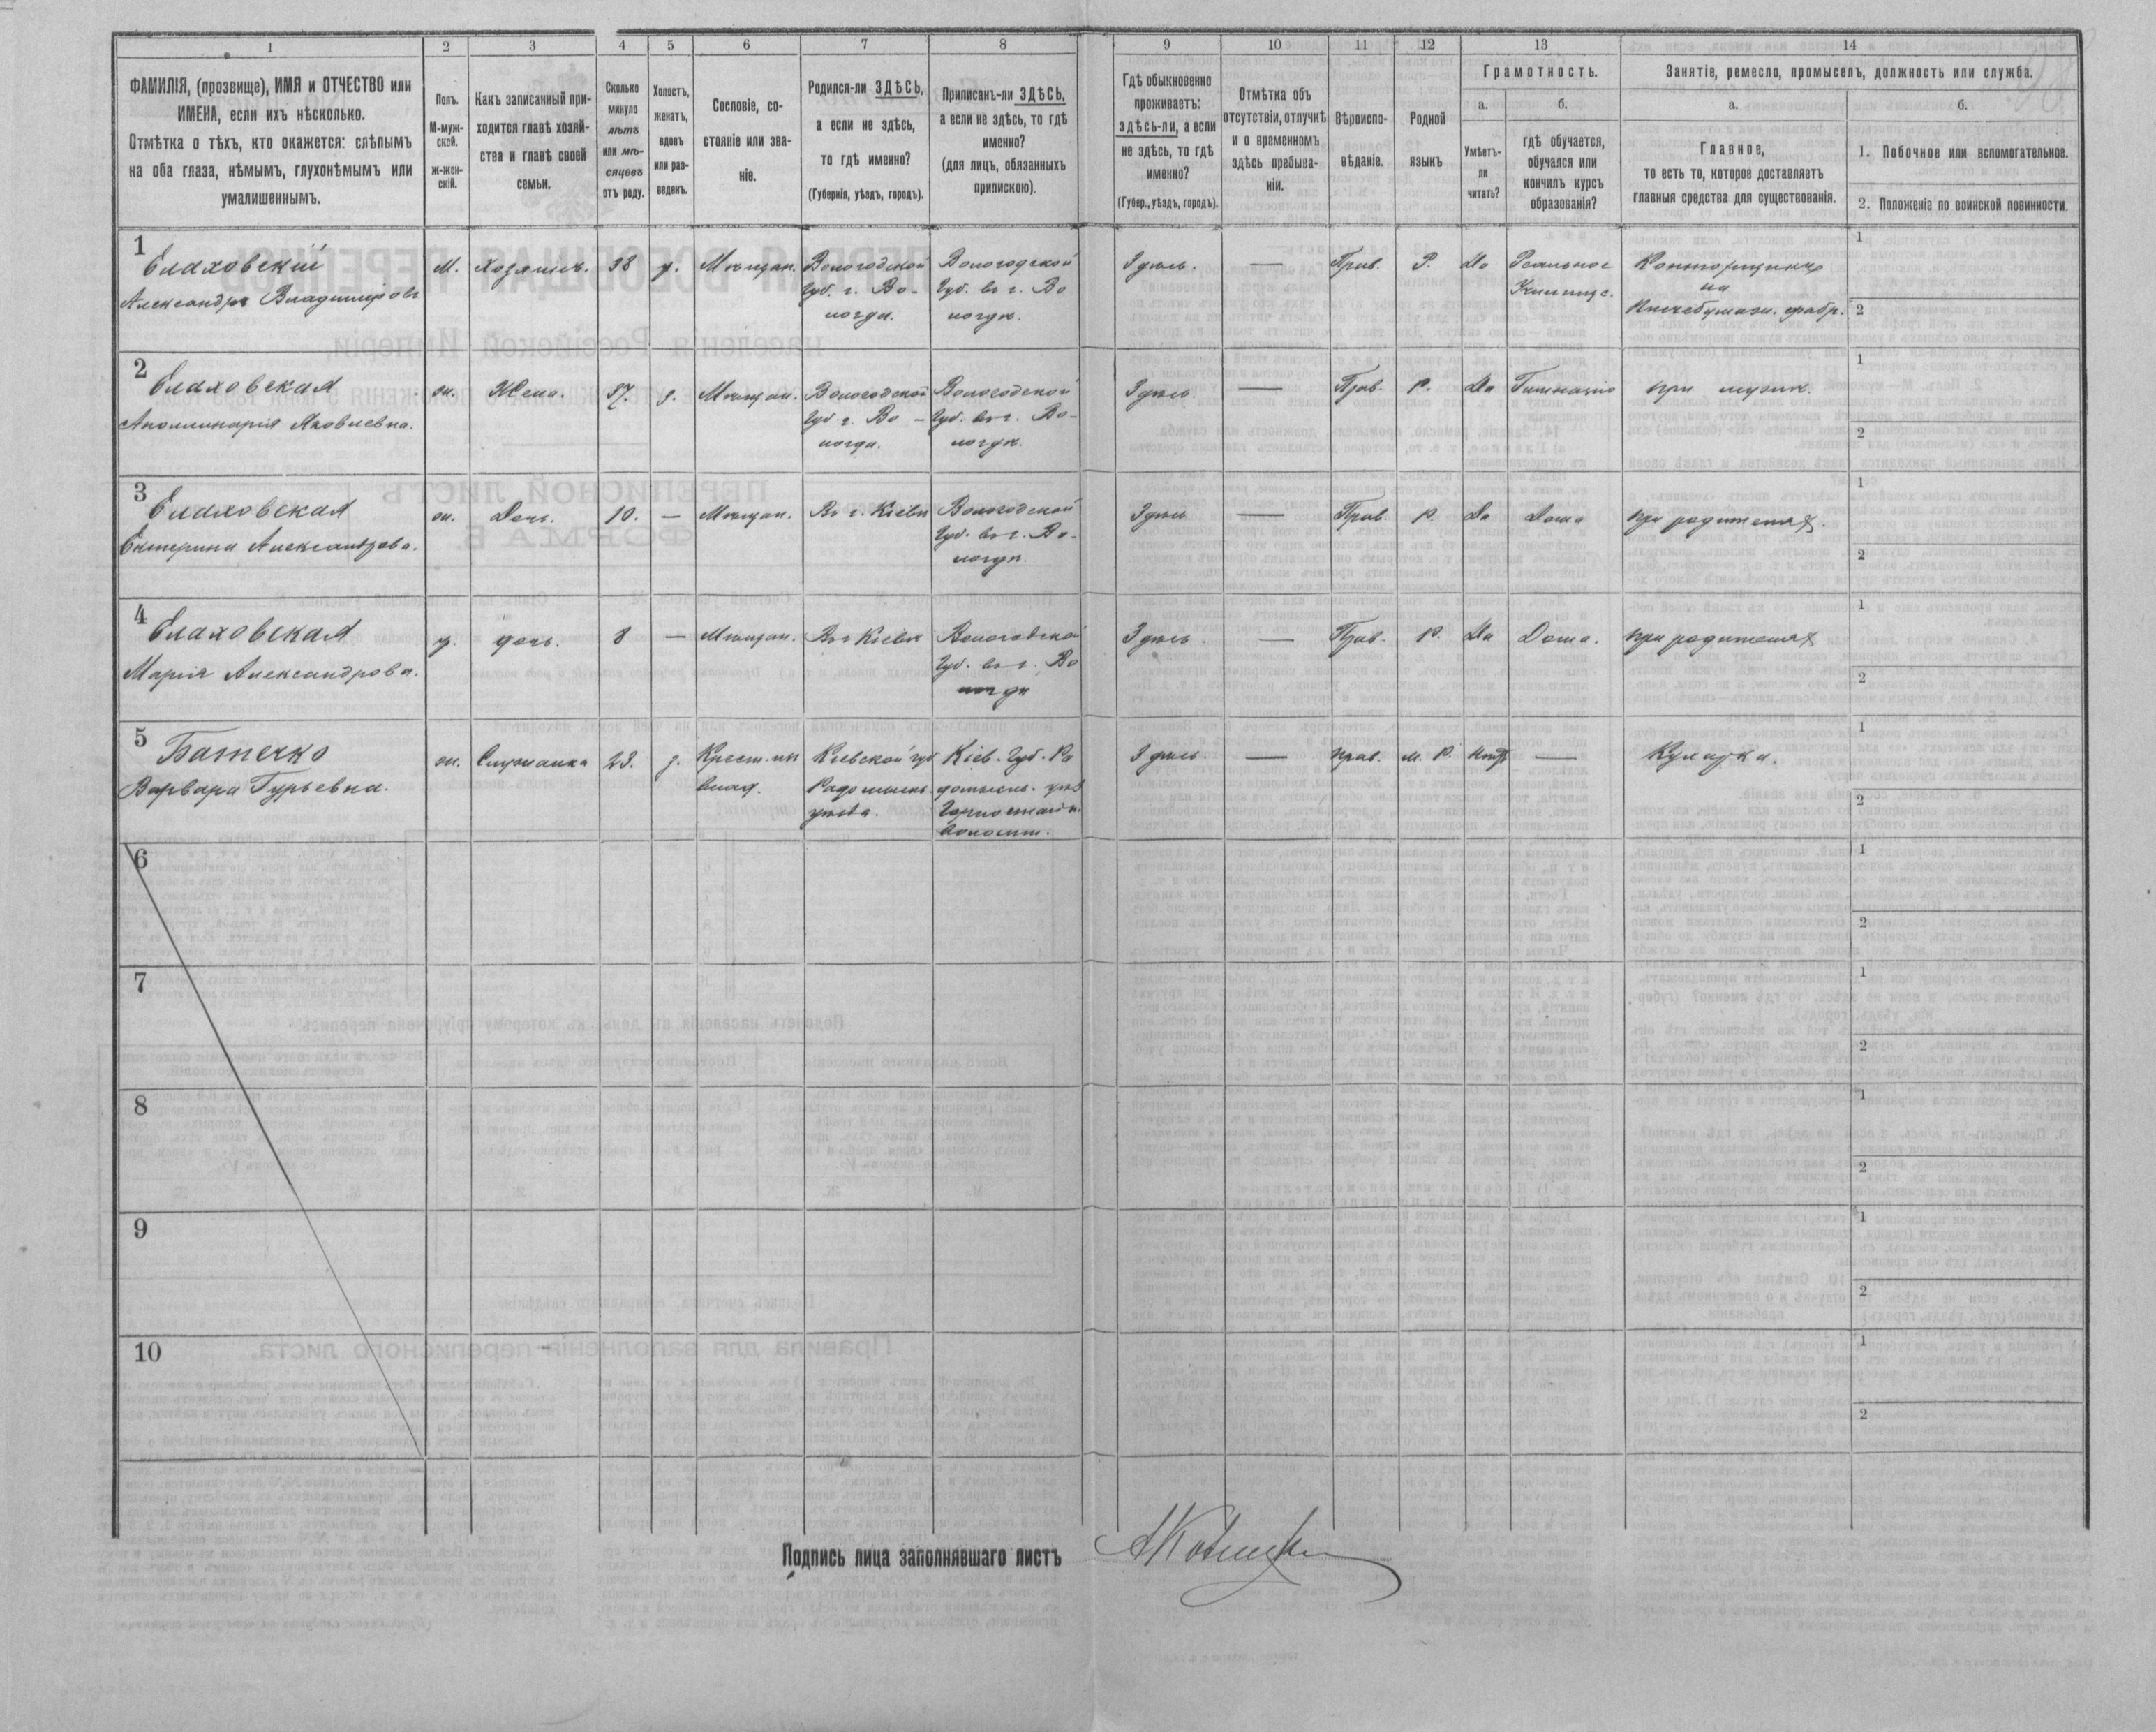 1 2 3 4 5 6 7 8 9 10 11 12 13 14
ФАМИЛІЯ, (прозвище), ИМЯ и ОТЧЕСТВО или
ИМЕНА, если ихъ нѣсколько.
Отмѣтка о тѣхъ, кто окажется: слѣпымъ
на оба глаза, нѣмымъ, глухонѣмымъ или
умалишеннымъ.
Полъ.
М-муж-
ской.
ж-жен-
скій.
Какъ записанный при-
ходится главѣ хозяй-
ства и главѣ своей
семьи.
Сколько
минуло
лѣтъ
или мѣ-
сяцевъ
отъ роду.
Холостъ,
женатъ,
вдовъ
или раз-
веденъ.
Сословіе, со-
стояніе или зва-
ніе.
Родился-ли ЗДѢСЬ,
а если не здѣсь,
то гдѣ именно?
(Губернія, уѣздъ, городъ).
Приписанъ-ли ЗДѢСЬ,
а если не здѣсь, то гдѣ
именно?
(для лицъ, обязанныхъ
припискою).
Гдѣ обыкновенно
проживаетъ:
здѣсь-ли, а если
не здѣсь, то гдѣ
именно?
(Губер., уѣздъ, городъ).
Отмѣтка объ
отсутствіи, отлучкѣ
и о временномъ
здѣсь пребыва-
ніи.
Вѣроиспо-
вѣданіе.
Родной
языкъ
Грамотность.
а.
Умѣетъ-
ли
читать?
б.
гдѣ обучается,
обучался или
кончилъ курсъ
образованія?
Занятіе, ремесло, промыселъ, должность или служба.
а.
Главное,
то есть то, которое доставляетъ
главныя средства для существованія.
б.
1. Побочное или вспомогательное.
2. Положеніе по воинской повинности.
1
Елаховскій
Александръ Владиміровъ
М.
Хозяинъ.
38
Мѣщан.
Вологодской
Губ. г. Во-
логда.
Вологодской
Губ. въ г. Во
логдѣ.
Здѣсь.
—
Прав.
Р.
Да
Реальное
Училище.
Конторщикъ
на
Писчебумажн. фабр.
1
2
2
Елаховская
Аполлинарія Яковлевна.
ж.
Жена.
37.
з.
Мѣщан.
Вологодской
Губ. г. Во-
логда.
Вологодской
Губ. въ г. Во-
логдѣ.
Здѣсь.
—
Прав.
Р.
Да
Гимназію
при мужѣ.
1
2
3
Елаховская
Екатерина Александрова.
ж.
Дочь.
10.
—
Мѣщан.
Въ г. Кіевѣ
Вологодской
Губ. въ г. Во-
логдѣ.
Здѣсь
—
Прав.
Р.
Да
Дома
при родителях.
1
2
4
Елаховская
Марія Александрова.
дочь.
8
—
Мѣщан.
Въ г Кіевѣ
Вологодской
Губ. въ г. Во
логдѣ
Здѣсь.
—
Прав.
Р.
Да
Дома.
при родителях
1
2
5
Батечко
Варвара Гурьевна.
ж.
Служанка
23.
Крест. из
влад.
Кіевской губ
Радомысль.
уѣзда.
Кіев. Губ. Ра
домысль. уѣз
Горностайп.
Волости.
Здѣсь.
—
прав.
м. Р.
нѣтъ
—
Кухарка.
1
2
6
1
2
7
1
2
8
1
2
9
1
2
10
1
2
Подпись лица заполнявшаго листъ